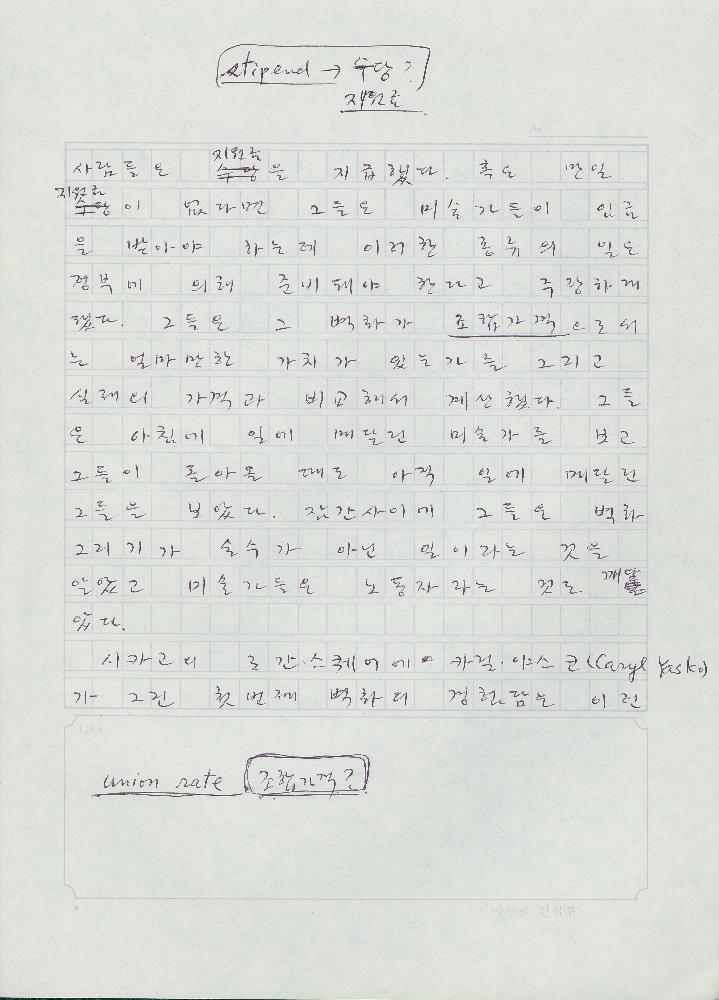 stipend → 수당?
지원금
사람들은 지원금 수당을 지급했다. 혹은 만일
지원금 수당이 없다면 그들은 미술가들이 임금
을 받아야 하는데 이러한 종류의 일은
정부에 의해 준비돼야 한다고 주장하게
됐다. 그들은 그 벽화가 조합가격으로서
는 얼마만한 가치가 있는가를 그리고
실제의 가격과 비교해서 계산했다. 그들
은 아침에 일에 매달린 미술가를 보고
그들이 돌아올 때도 아직 일에 매달린
그들을 보았다. 잠간사이에 그들은 벽화
그리기가 술수가 아닌 일이라는 것을
알았고 미술가들은 노동자라는 것도 깨달
았다.
시카고의 로간·스퀘어에 카릴·야스코(Caryl Yasko)
가 그린 첫번째 벽화의 경험담은 이런
union rate 조합가격?